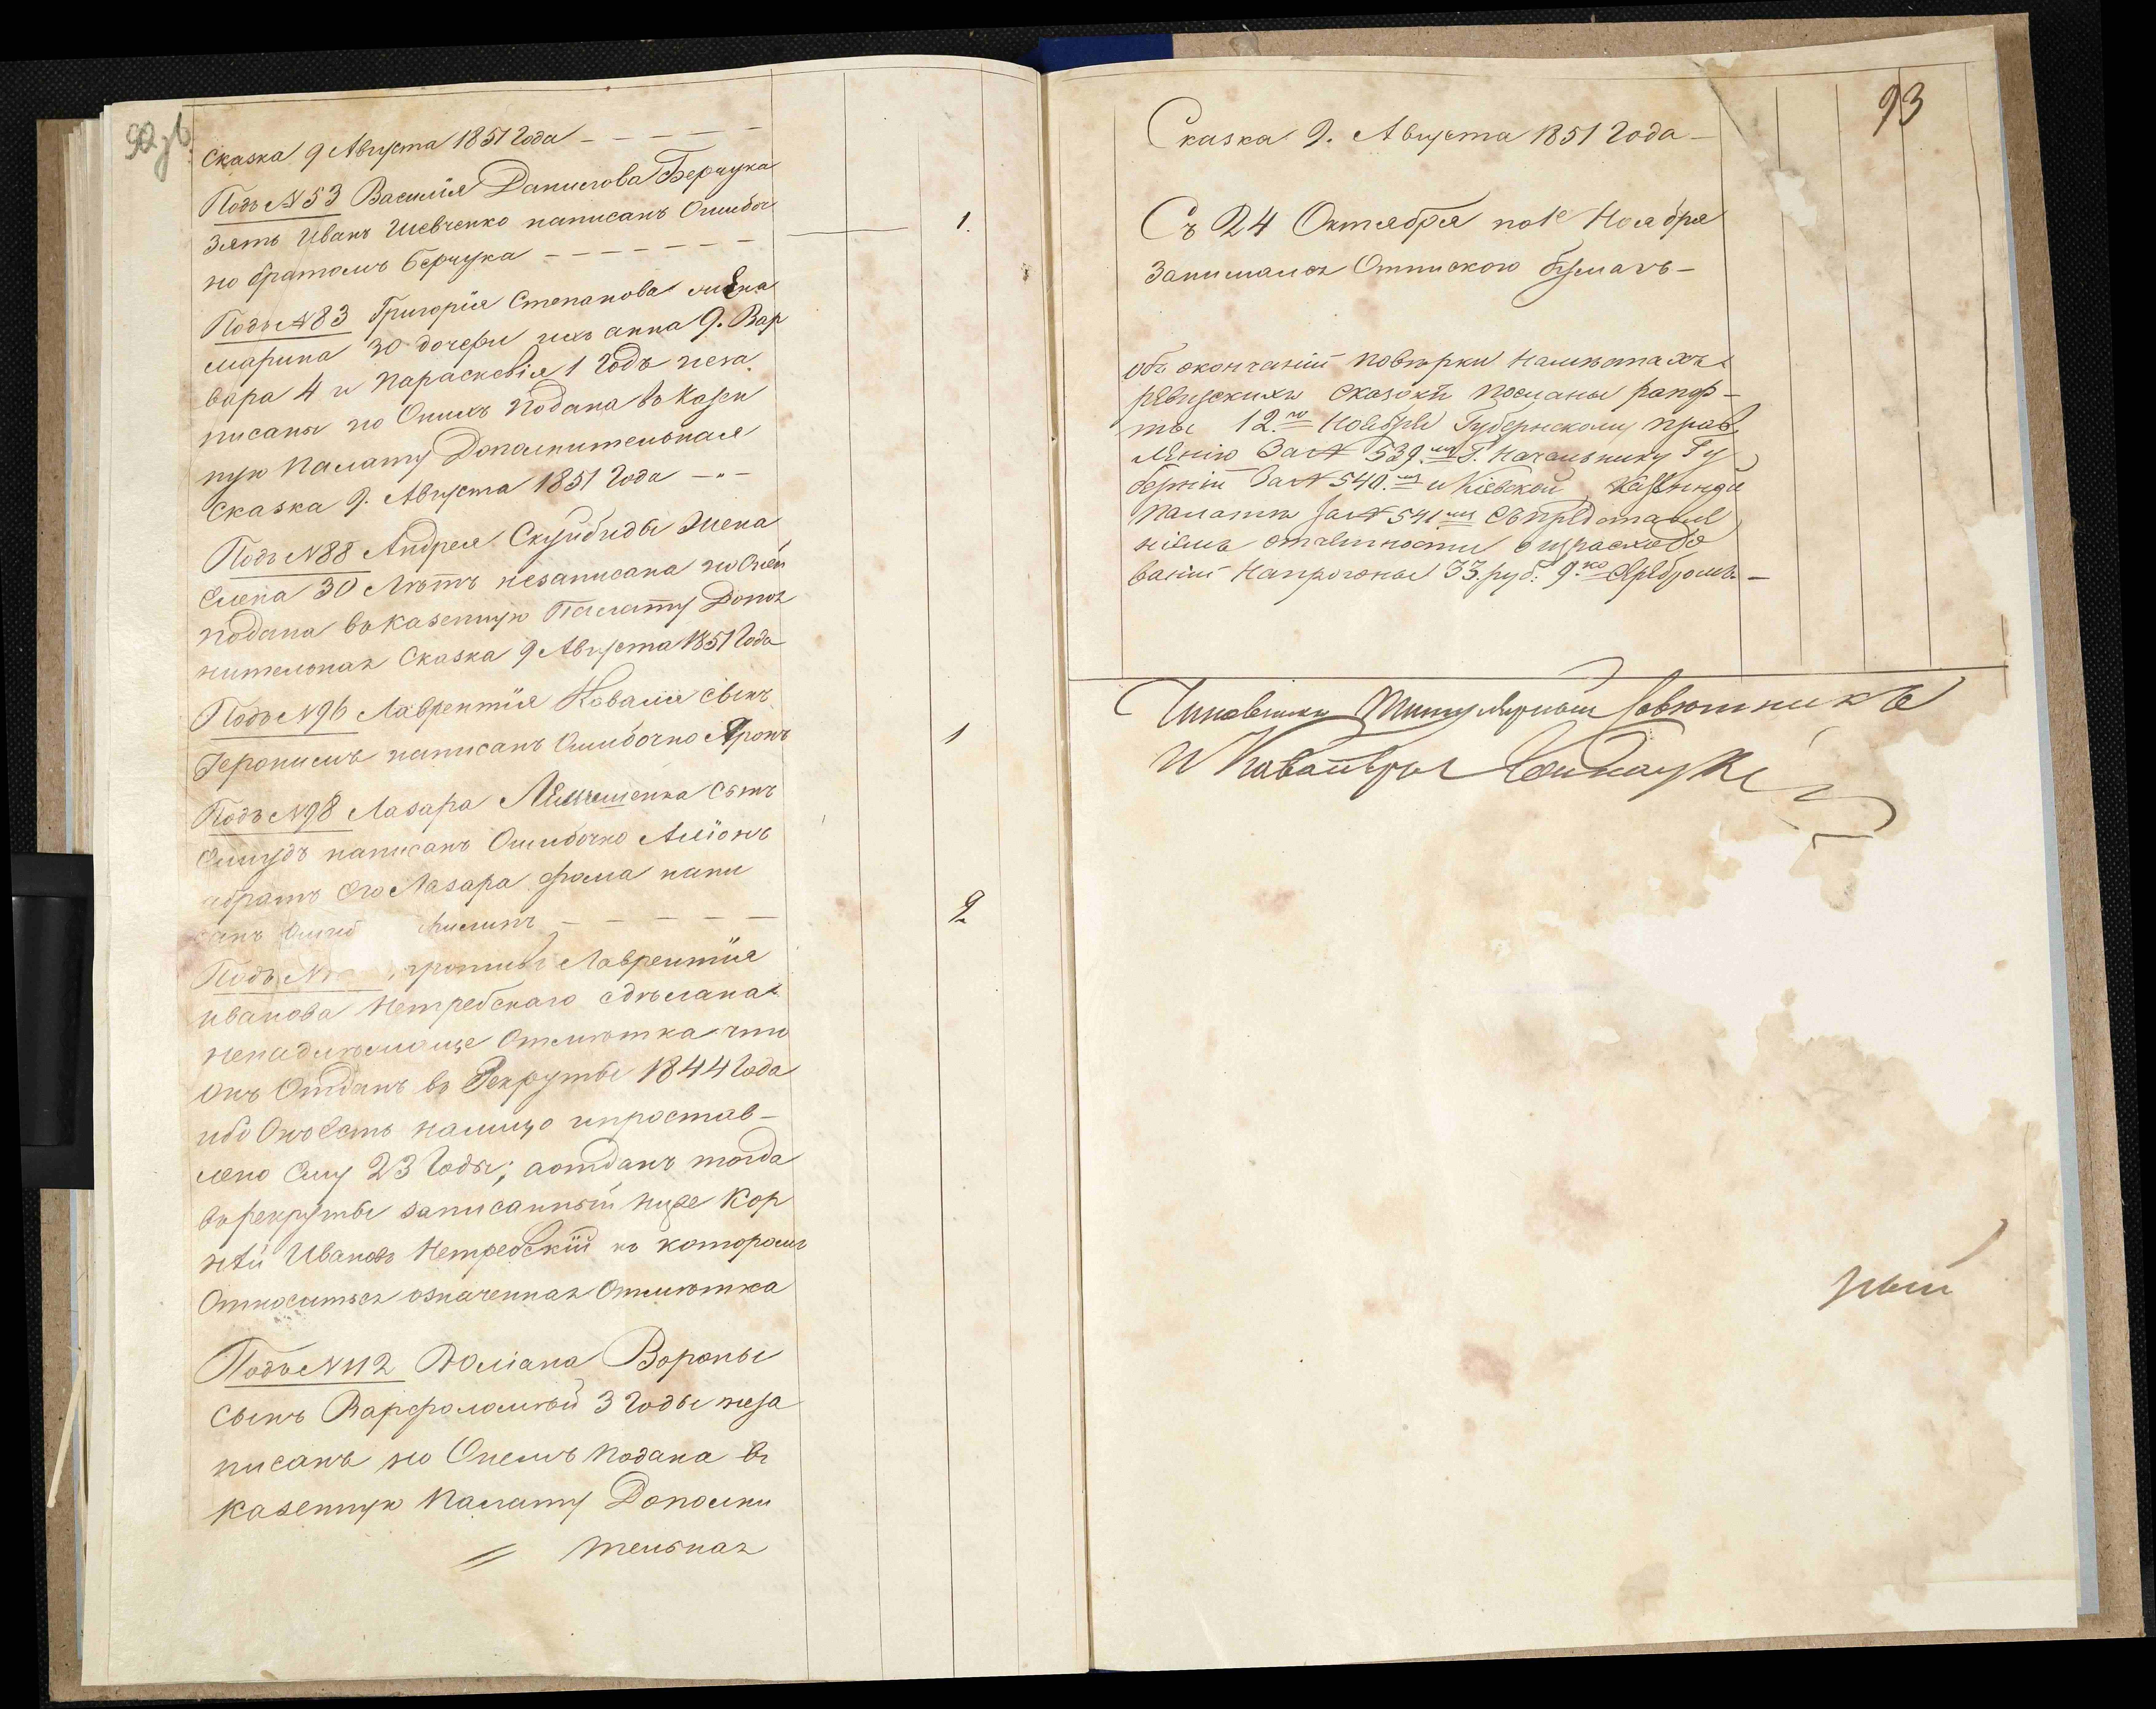 92 зв.
Сказка 9 Августа 1851 Года
Подъ №53 Василія Данилова Берчука
Зять Иванъ Шевченко написанъ Ошибоч
но братомъ Берчука
1.
Подъ №83 Григорія Степанова жена
Марина 30 дочери ихъ анна 9. Вар
вара 4 и Параскевія 1 Годъ неза
писаны но Онихъ Подана въ Казен
ную Палату Дополнительная
Сказка 9. Августа 1851 Года
Подъ №88 Андрея Скуйбиды Жена
Елена 30 Лѣтъ незаписана но Оней
подана въ Казенную Палату Допол
нительная Сказка 9 Августа 1851 Года
Подъ №96 Лаврентія Коваля сынъ
Іеронимъ написанъ Ошибочно Яронъ
1
Подъ №98 Лазара сынъ
написанъ Ошибочно
абратъ Его Лазара фома напи
санъ Ошиб Филипъ
2
Подъ № противъ Лаврентія
иванова Нетребскаго сдѣлана
ненадлежаще Отмѣтка что
онъ Отданъ въ Рекруты 1844 Года
ибо Онъ Есть налицо ипростав-
лено Ему 23 Годы; аотданъ тогда
върекруты записанный ниже Кор
нѣй Ивановъ Нетребскій къ которомъ
Относиться означенная Отмѣтка
Подъ №112 Юліана Вороны
сынъ Варфоломѣй 3 Годы неза
писанъ но Онемъ подана въ
казенную Палату Дополни
= тельная
93
Сказка 9. Августа 1851 Года
Съ 24 Октября по 1е Ноября
Занимался Отпискою бумагъ-
объ окончаніи повѣрки намѣстахъ
ревизскихъ сказокъ посланы рапор-
ты 12.го Ноября Губернскому прав
ленію За № 539.мъ Г. Начальнику Гу
берніи За № 540.мъ и Кіевской Казенной
палатѣ за № 541.мъ Съпредставле
ніемъ отчетности о израсходо
ваніи Напрогоны 33. руб: 9.ко Серебромъ-
Чиновникъ Титулярный Совѣтникъ
И Кавалеръ
ный